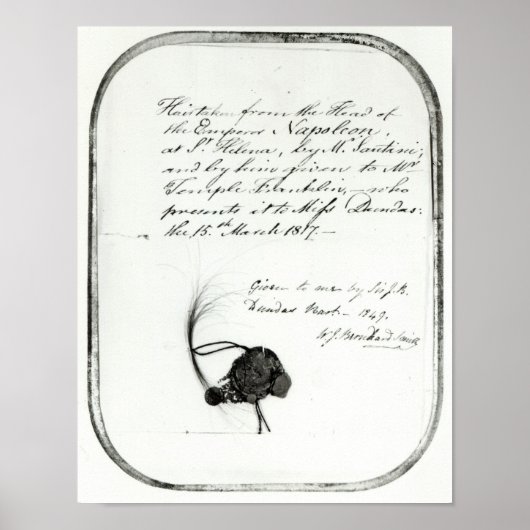 Hair taken from the Head of
the Emperor Napoleon,
at St. Helena, by Mr. Santini;
and by him given to Mr
Temple Franklin,— who
presents it to Miss Dundas:
the 15.th March 1817.—
Given to me by Sir J. B.
Dundas Bart.— 1849.
W. J.